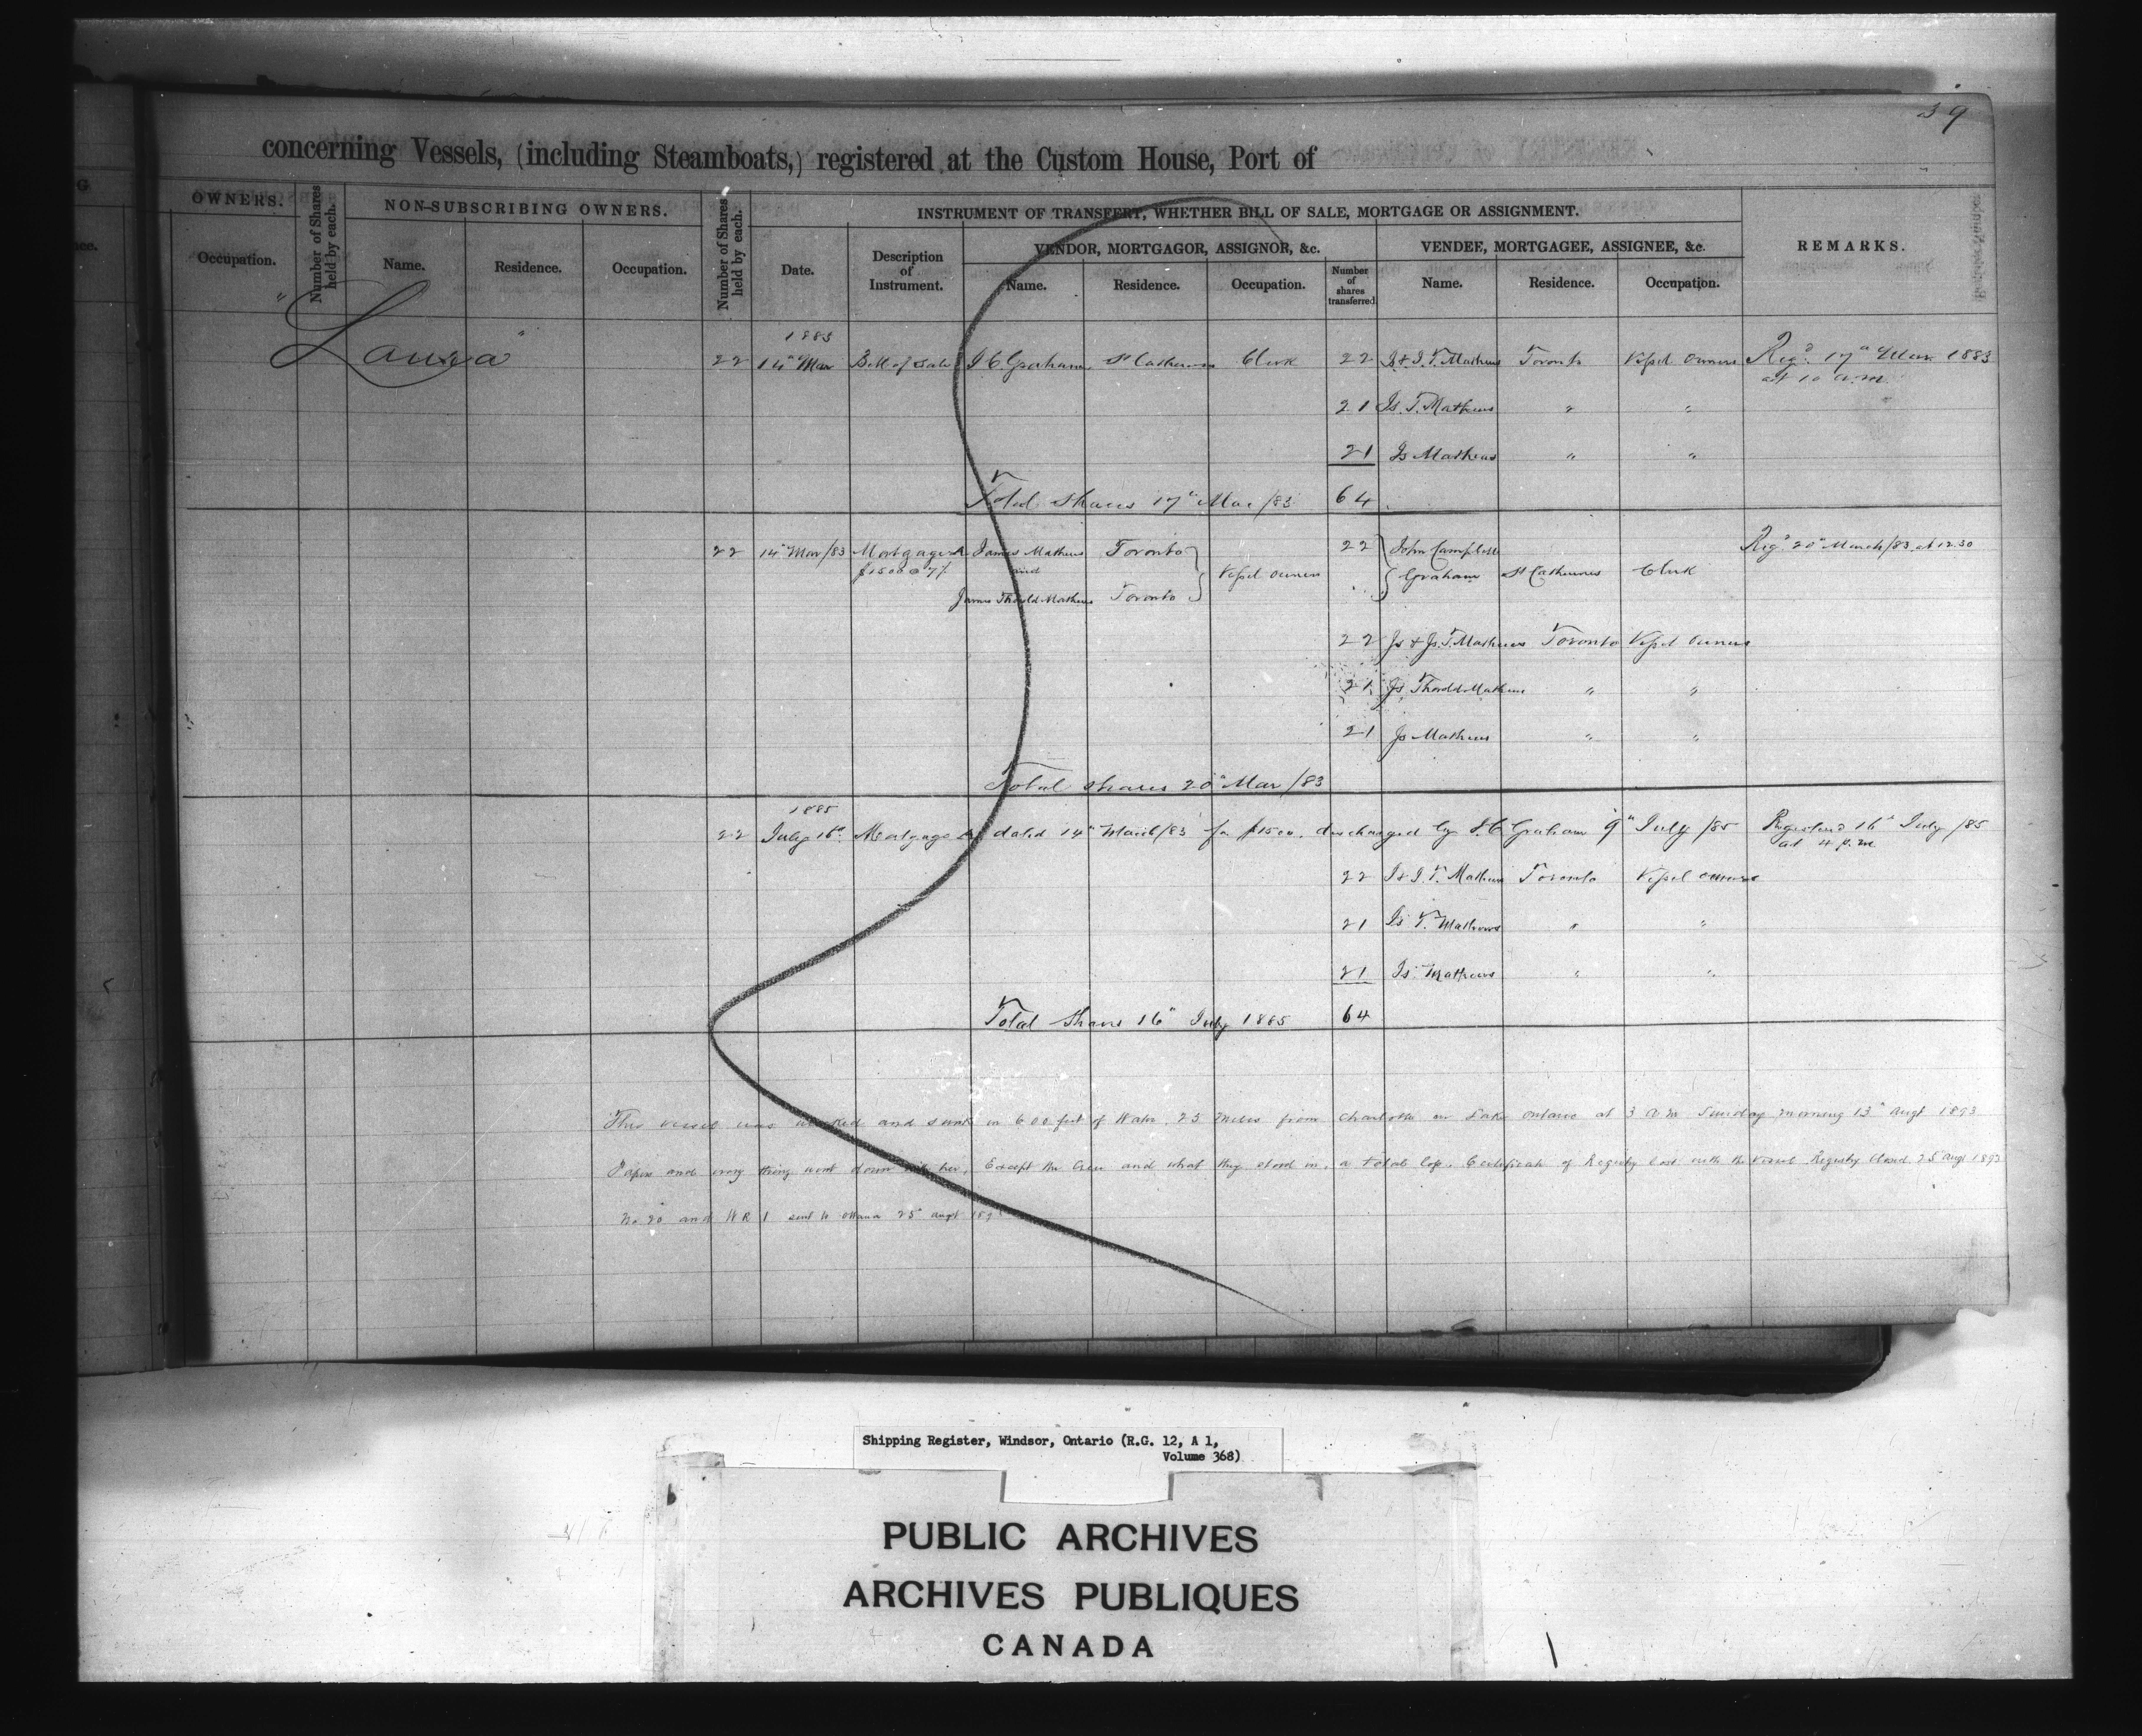 39
concerning Vessels, (including Steamboats,) registered at the Custom House, Port of
OWNERS.
Occupation.
Number of Shares held by each.
NON-SUBSCRIBING OWNERS.
Name.
Residence.
Occupation.
Number of Shares held by each.
INSTRUMENT OF TRANSFERT, WHETHER BILL OF SALE, MORTGAGE OR ASSIGNMENT.
Date.
Description of Instrument.
VENDOR, MORTGAGOR, ASSIGNOR, &c.
Name.
Residence.
Occupation.
Number of shares transferred
VENDEE, MORTGAGEE, ASSIGNEE, &c.
Name.
Residence.
Occupation.
REMARKS.
"Laura"
1883
22 14" Mar Bill of Sale J C Graham St Catherines Clerk 22 Js & J. T. Mathews Toronto Vessel Owners Regd. 17" Mar 1883
at 10 a.m.
21 Js. T. Mathews " "
21 Js Mathews " "
Total Shares 17" Mar /83 64
22 14" Mar/83 Mortgage A James Mathews Toronto 22 John Campbell Regd 20" March/83 at 12.30
$1500 @ 7% and Vessel owners Graham St Catherines Clerk
James Thorold Mathews Toronto
22 Js & Js. T. Mathews Toronto Vessel Owners
21 Js Thorold Mathews " "
21 Js Mathews " "
Total shares 20" Mar /83
1885
22 July 16" Mortgage A dated 14" March/83 for $1500. discharged by J. C. Graham 9" July /85 Registered 16" July /85
at 4 p.m.
22 J & J. T. Mathews Toronto Vessel owners
21 Js T. Mathews " "
21 Js. Mathews " "
Total Shares 16" July 1885 64
This vessel was wrecked and sunk in 600 feet of Water. 25 Miles from Charlotte on Lake Ontario at 3 a m Sunday morning 13" Augt 1893
Papers and every thing went down with her, Except the Crew and what they stood in, a total loss. Certificate of Registry lost with the Vessel Registry Closed 25 Augt 1893
No 20 and W R 1 sent to Ottawa 25" Augt 189
Shipping Register, Windsor, Ontario (R.G. 12, A 1,
Volume 368)
PUBLIC ARCHIVES
ARCHIVES PUBLIQUES
CANADA